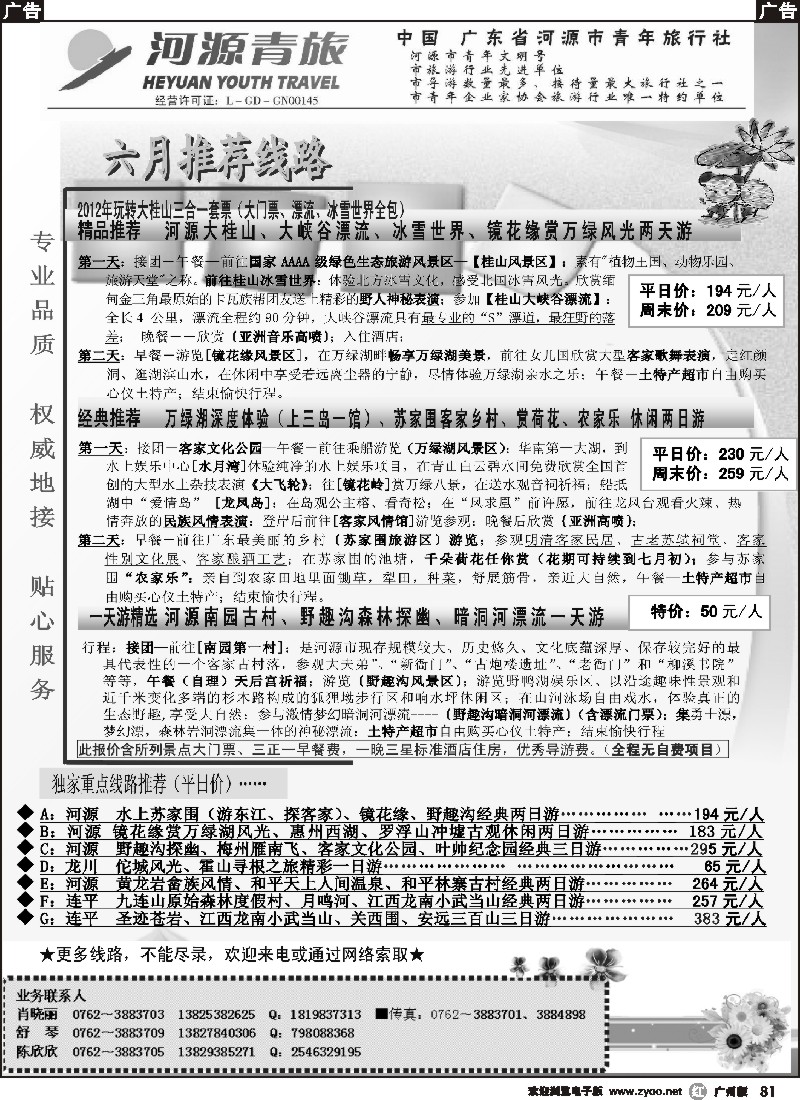 广告
广告
河源青旅
HEYUAN YOUTH TRAVEL
经营许可证：L-GD-GN00145
中国 广东省河源市青年旅行社
河源市青年文明号
市旅游行业先进单位
市导游数量最多、接待量最大旅行社之一
市青年企业家协会旅游行业唯一特约单位
六月推荐线路
专业品质 权威地接 贴心服务
2012年玩转大桂山三合一套票（大门票、漂流、冰雪世界全包）
精品推荐 河源大桂山、大峡谷漂流、冰雪世界、镜花缘赏万绿风光两天游
第一天：接团—午餐—前往国家AAAA级绿色生态旅游风景区—【桂山风景区】：素有"植物王国、动物乐园、
旅游天堂"之称。前往桂山冰雪世界：体验北方冰雪文化，感受北国冰雪风光。欣赏缅
甸金三角最原始的卡瓦族帮团友送上精彩的野人神秘表演；参加【桂山大峡谷漂流】：
全长4公里，漂流全程约90分钟，大峡谷漂流具有最专业的"S"漂道，最狂野的落
差； 晚餐——欣赏（亚洲音乐高喷）；入住酒店；
平日价：194元/人
周末价：209元/人
第二天：早餐—游览[镜花缘风景区]，在万绿湖畔畅享万绿湖美景，前往女儿国欣赏大型客家歌舞表演，走红颜
洞、逛湖滨山水，在休闲中享受着远离尘嚣的宁静，尽情体验万绿湖亲水之乐；午餐—土特产超市自由购买
心仪土特产；结束愉快行程。
经典推荐 万绿湖深度体验（上三岛一馆）、苏家围客家乡村、赏荷花、农家乐 休闲两日游
第一天：接团—客家文化公园—午餐—前往乘船游览（万绿湖风景区）：华南第一大湖，到
水上娱乐中心[水月湾]体验纯净的水上娱乐项目，在青山白云碧水间免费欣赏全国首
创的大型水上杂技表演《大飞轮》；往[镜花岭]赏万绿八景，在送水观音祠祈福；船抵
湖中"爱情岛" [龙凤岛]：在岛观公主榕、看奇松；在"凤求凰"前许愿，前往龙凤台观看火辣、热
情奔放的民族风情表演；登岸后前往[客家风情馆]游览参观；晚餐后欣赏（亚洲高喷）；
平日价：230元/人
周末价：259元/人
第二天：早餐—前往广东最美丽的乡村（苏家围旅游区）游览；参观明清客家民居、古老苏轼祠堂、客家
性别文化展、客家酿酒工艺；在苏家围的池塘，千朵荷花任你赏（花期可持续到七月初）；参与苏家
围"农家乐"：亲自到农家田地里面锄草，犁田，种菜，舒展筋骨，亲近大自然，午餐—土特产超市自
由购买心仪土特产；结束愉快行程。
一天游精选 河源南园古村、野趣沟森林探幽、暗洞河漂流一天游
特价：50元/人
行程：接团—前往[南园第一村]：是河源市现存规模较大、历史悠久、文化底蕴深厚、保存较完好的最
具代表性的一个客家古村落，参观大夫弟"、"新衙门"、"古炮楼遗址"、"老衙门"和"柳溪书院"
等等，午餐（自理）天后宫祈福；游览（野趣沟风景区）；游览野鸭湖娱乐区、以沿途趣味性景观和
近千米变化多端的杉木路构成的狐狸坳步行区和响水坪休闲区；在山河泳场自由戏水，体验真正的
生态野趣,享受大自然；参与激情梦幻暗洞河漂流----（野趣沟暗洞河漂流）（含漂流门票）；集勇士漂,
梦幻漂，森林岩洞漂流集一体的神秘漂流；土特产超市自由购买心仪土特产；结束愉快行程
此报价含所列景点大门票、三正一早餐费，一晚三星标准酒店住房，优秀导游费。（全程无自费项目）
独家重点线路推荐（平日价）……
◆A：河源 水上苏家围（游东江、探客家）、镜花缘、野趣沟经典两日游…………… ……194元/人
◆B：河源 镜花缘赏万绿湖风光、惠州西湖、罗浮山冲墟古观休闲两日游…………… 183元/人
◆C：河源 野趣沟探幽、梅州雁南飞、客家文化公园、叶帅纪念园经典三日游……………295元/人
◆D：龙川 佗城风光、霍山寻根之旅精彩一日游………………… ……………………… 65元/人
◆E：河源 黄龙岩畲族风情、和平天上人间温泉、和平林寨古村经典两日游…………… 264元/人
◆F：连平 九连山原始森林度假村、月鸣河、江西龙南小武当山经典两日游…………… 257元/人
◆G：连平 圣迹苍岩、江西龙南小武当山、关西围、安远三百山三日游………………… 383元/人
★更多线路，不能尽录，欢迎来电或通过网络索取★
业务联系人
肖晓丽 0762～3883703 13825382625 Q：1819837313 ■传真：0762～3883701、3884898
舒 琴 0762～3883709 13827840306 Q：798088368
陈欣欣 0762～3883705 13829385271 Q：2546329195
欢迎浏览电子版 www.zyoo.net 红 广州版 81